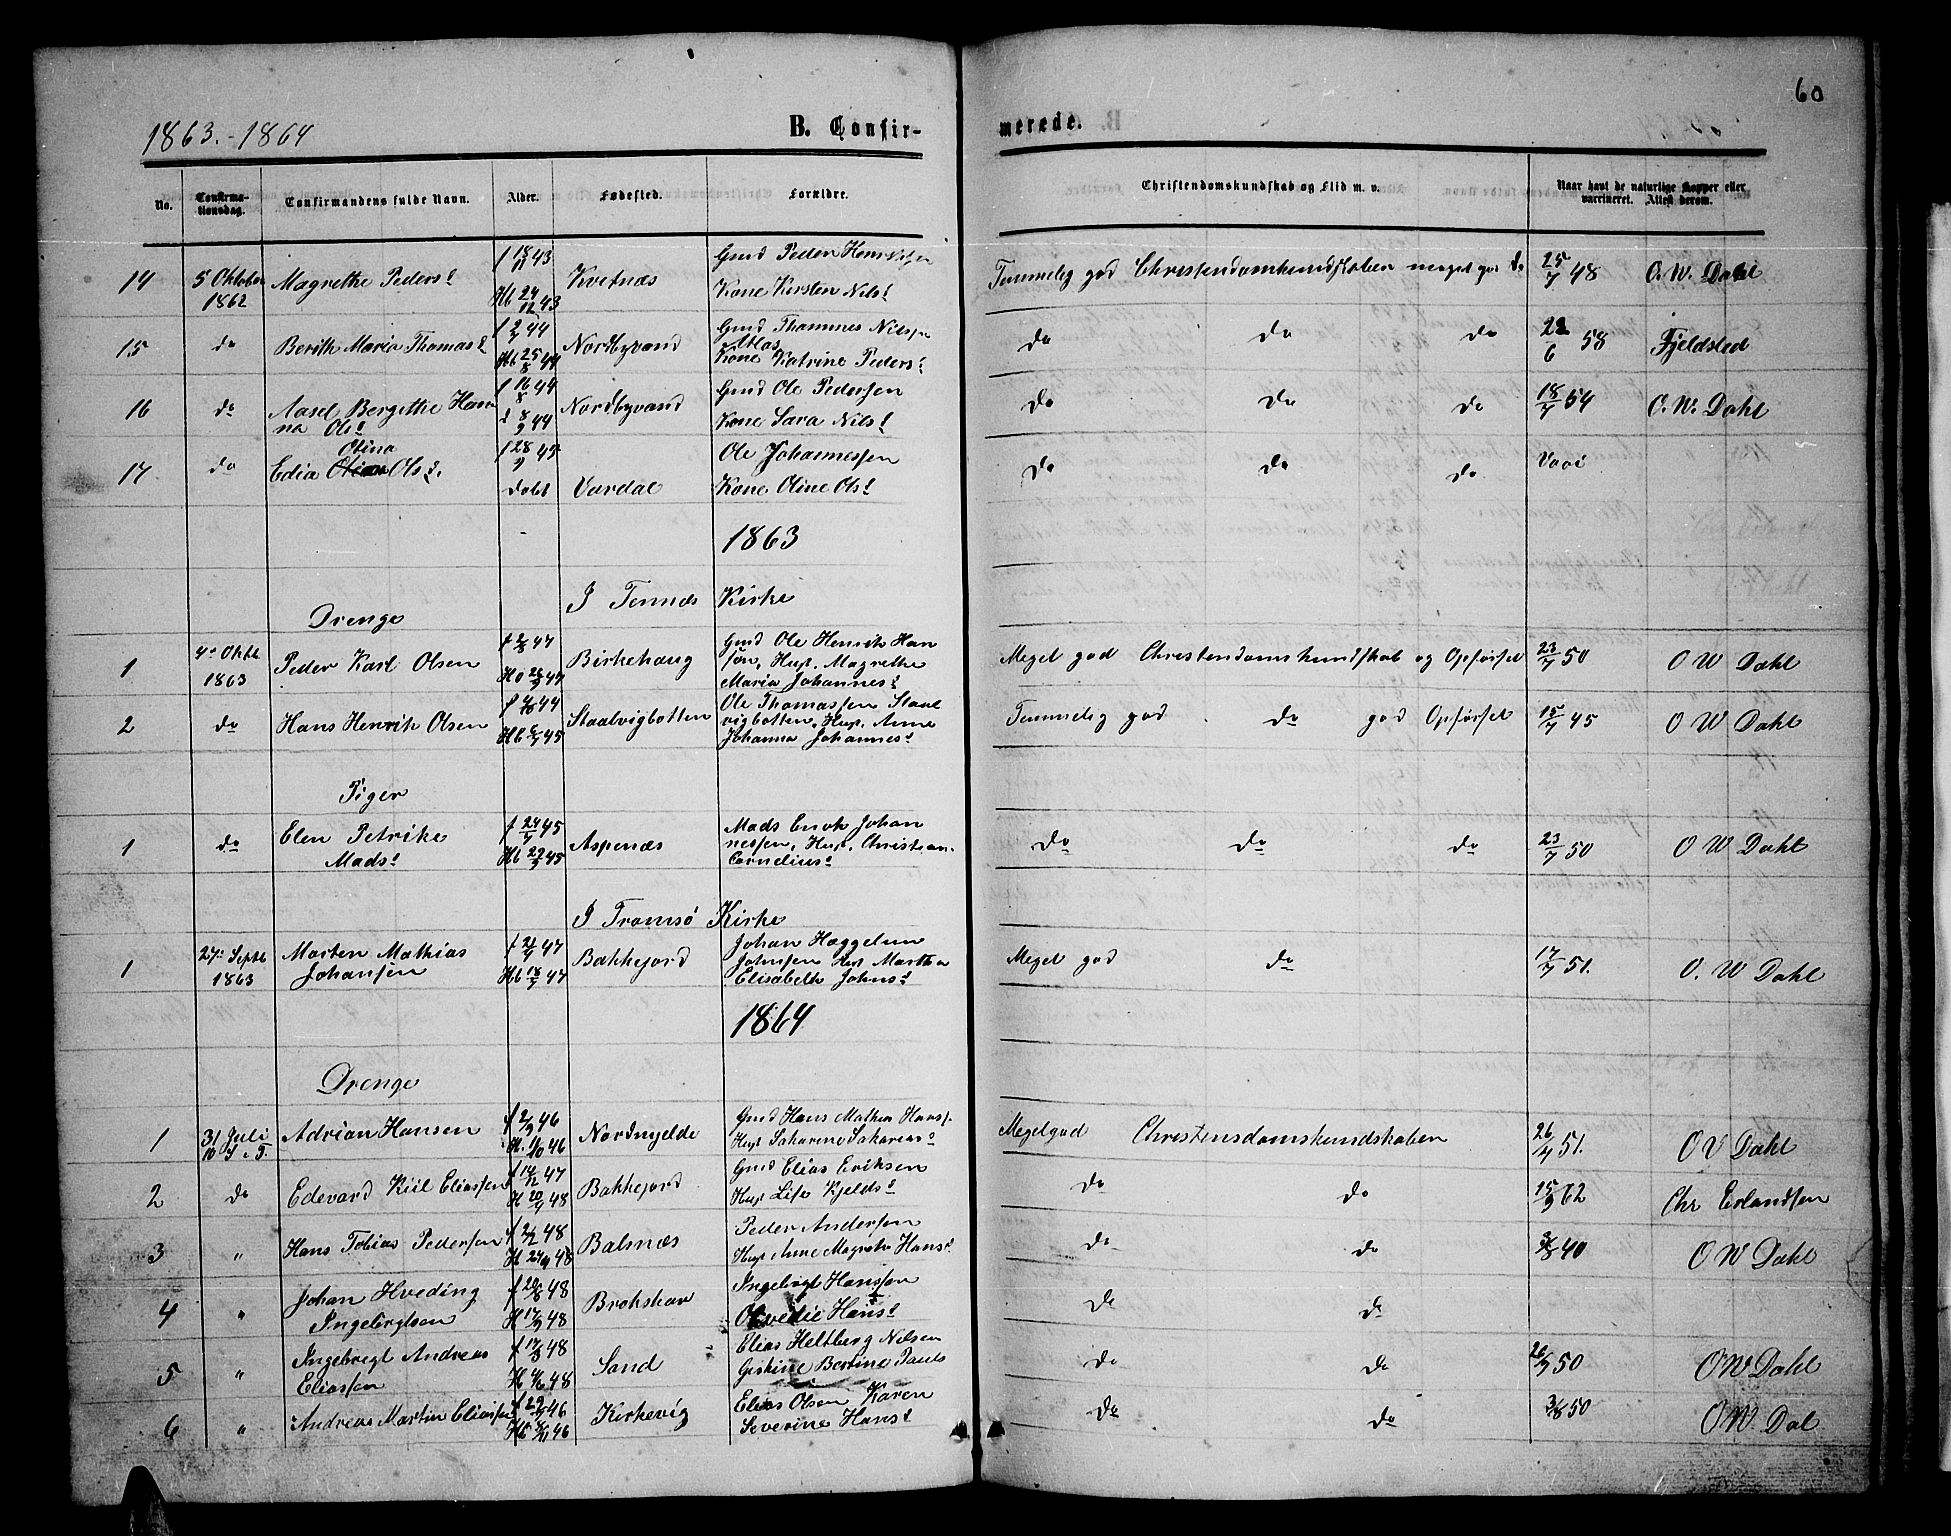 60
1863.-1864
B. Confir-
merede.
No.
Confirma-
tionsdag.
Confirmandens fulde Navn.
Alder.
Fødested.
Forældre.
Christendomskundskab og Flid m. v.
Naar havt de naturlige Kopper eller
vaccineret. Attest derom.
14 5 Oktober 1862 Magrethe Peders: f 43 Hb 24/12 43 Kvetnæs Gmd Peder Hans
Kone Kirsten Nils: Temmelig god Christendomkundskaben meget god do 25/7 48 O. W. Dahl
15 do Berith Maria Thomas: f 44 Hb 25/8 44 Nordbyvand Gmd Thommes Nilsen
Kone Katrine Peders: do do do 22/6 58 Fjeldsted
16 do Aasel Bergethe Hanna Ols: f 16/8 44 d 8/9 44 Nordbyvand Gmd Ole Pedersen
Kone Sara Nils: do do do 18/7 54 O. W. Dahl
17 do Edia Otina Ols: f 28/9 45 døbt Vardal Ole Johannessen
Kone Oline Ols: do do do
1863
I Tennæs Kirke
Drenge
1 4de Oktb 1863 Peder Karl Olsen f 47 Birkehaug Gmd Ole Henrik Han
sen, Hust. Magrethe
Maria Johannes: Meget god Christendomskundskab og Opførsel 23/7 50 O W Dahl
2 do Hans Henrik Olsen f 44 Hb 45 Staalvigbotten Ole Thomassen Staal
vigbotten, Hust. Anne
Johanna Johannes: Temmelig god do god Opførsel 15/7 45 O W Dahl
Piger
1 do Elen Petrike
Mads: f 45 Hb 45 Aspenæs Mads Enok Johan
nessen, Hust. Christian
Cornelius: do do do 23/7 50 O W Dahl
I Tromsø Kirke
1 27de Septb 1863 Morten Mathias
Johansen f 47 Hb 47 Bakkejord Johan Hæggelun
Johnsen Hust Martha
Elisabeth Johns: Meget god do 17/7 51. O. W Dahl
1864
Drenge
1 31 Juli Adrian Hansen f 2/9 46 46 Nordnyldе Gmd Hans Mathea Hans
Hust Sakarine Sakarias: Meget god Christensdomskundskaben 26/4 51. O V Dahl
2 do Edevard Kiil Eliassen f 47 H 48 Bakkejord Gmd Elias Eriksen
Hust Lise Kjelds: do do 15/9 62 Chr Erlandsen
3 " Hans Tobias Pedersen f 48 H 48 Balsnæs Peder Andersen
Hust Anne Magrete Hans: do do 40 O W Dahl
4 " Johan Hveding
Ingebrigtsen f 48 H 48 Brokskar Ingebrigt Hanssen
Hans: do do
5 " Ingebregt Andreas
Eliassen f 48 H 48 Sand Elias Heltberg Nilsen
Giskine Bertine Pauls do do 50 O W Dahl
6 " Andreas Martin Eliassen f 46 Hb 46 Kirkevig Elias Olsen Karen
Severine Hans: do do 50 O W. Dal